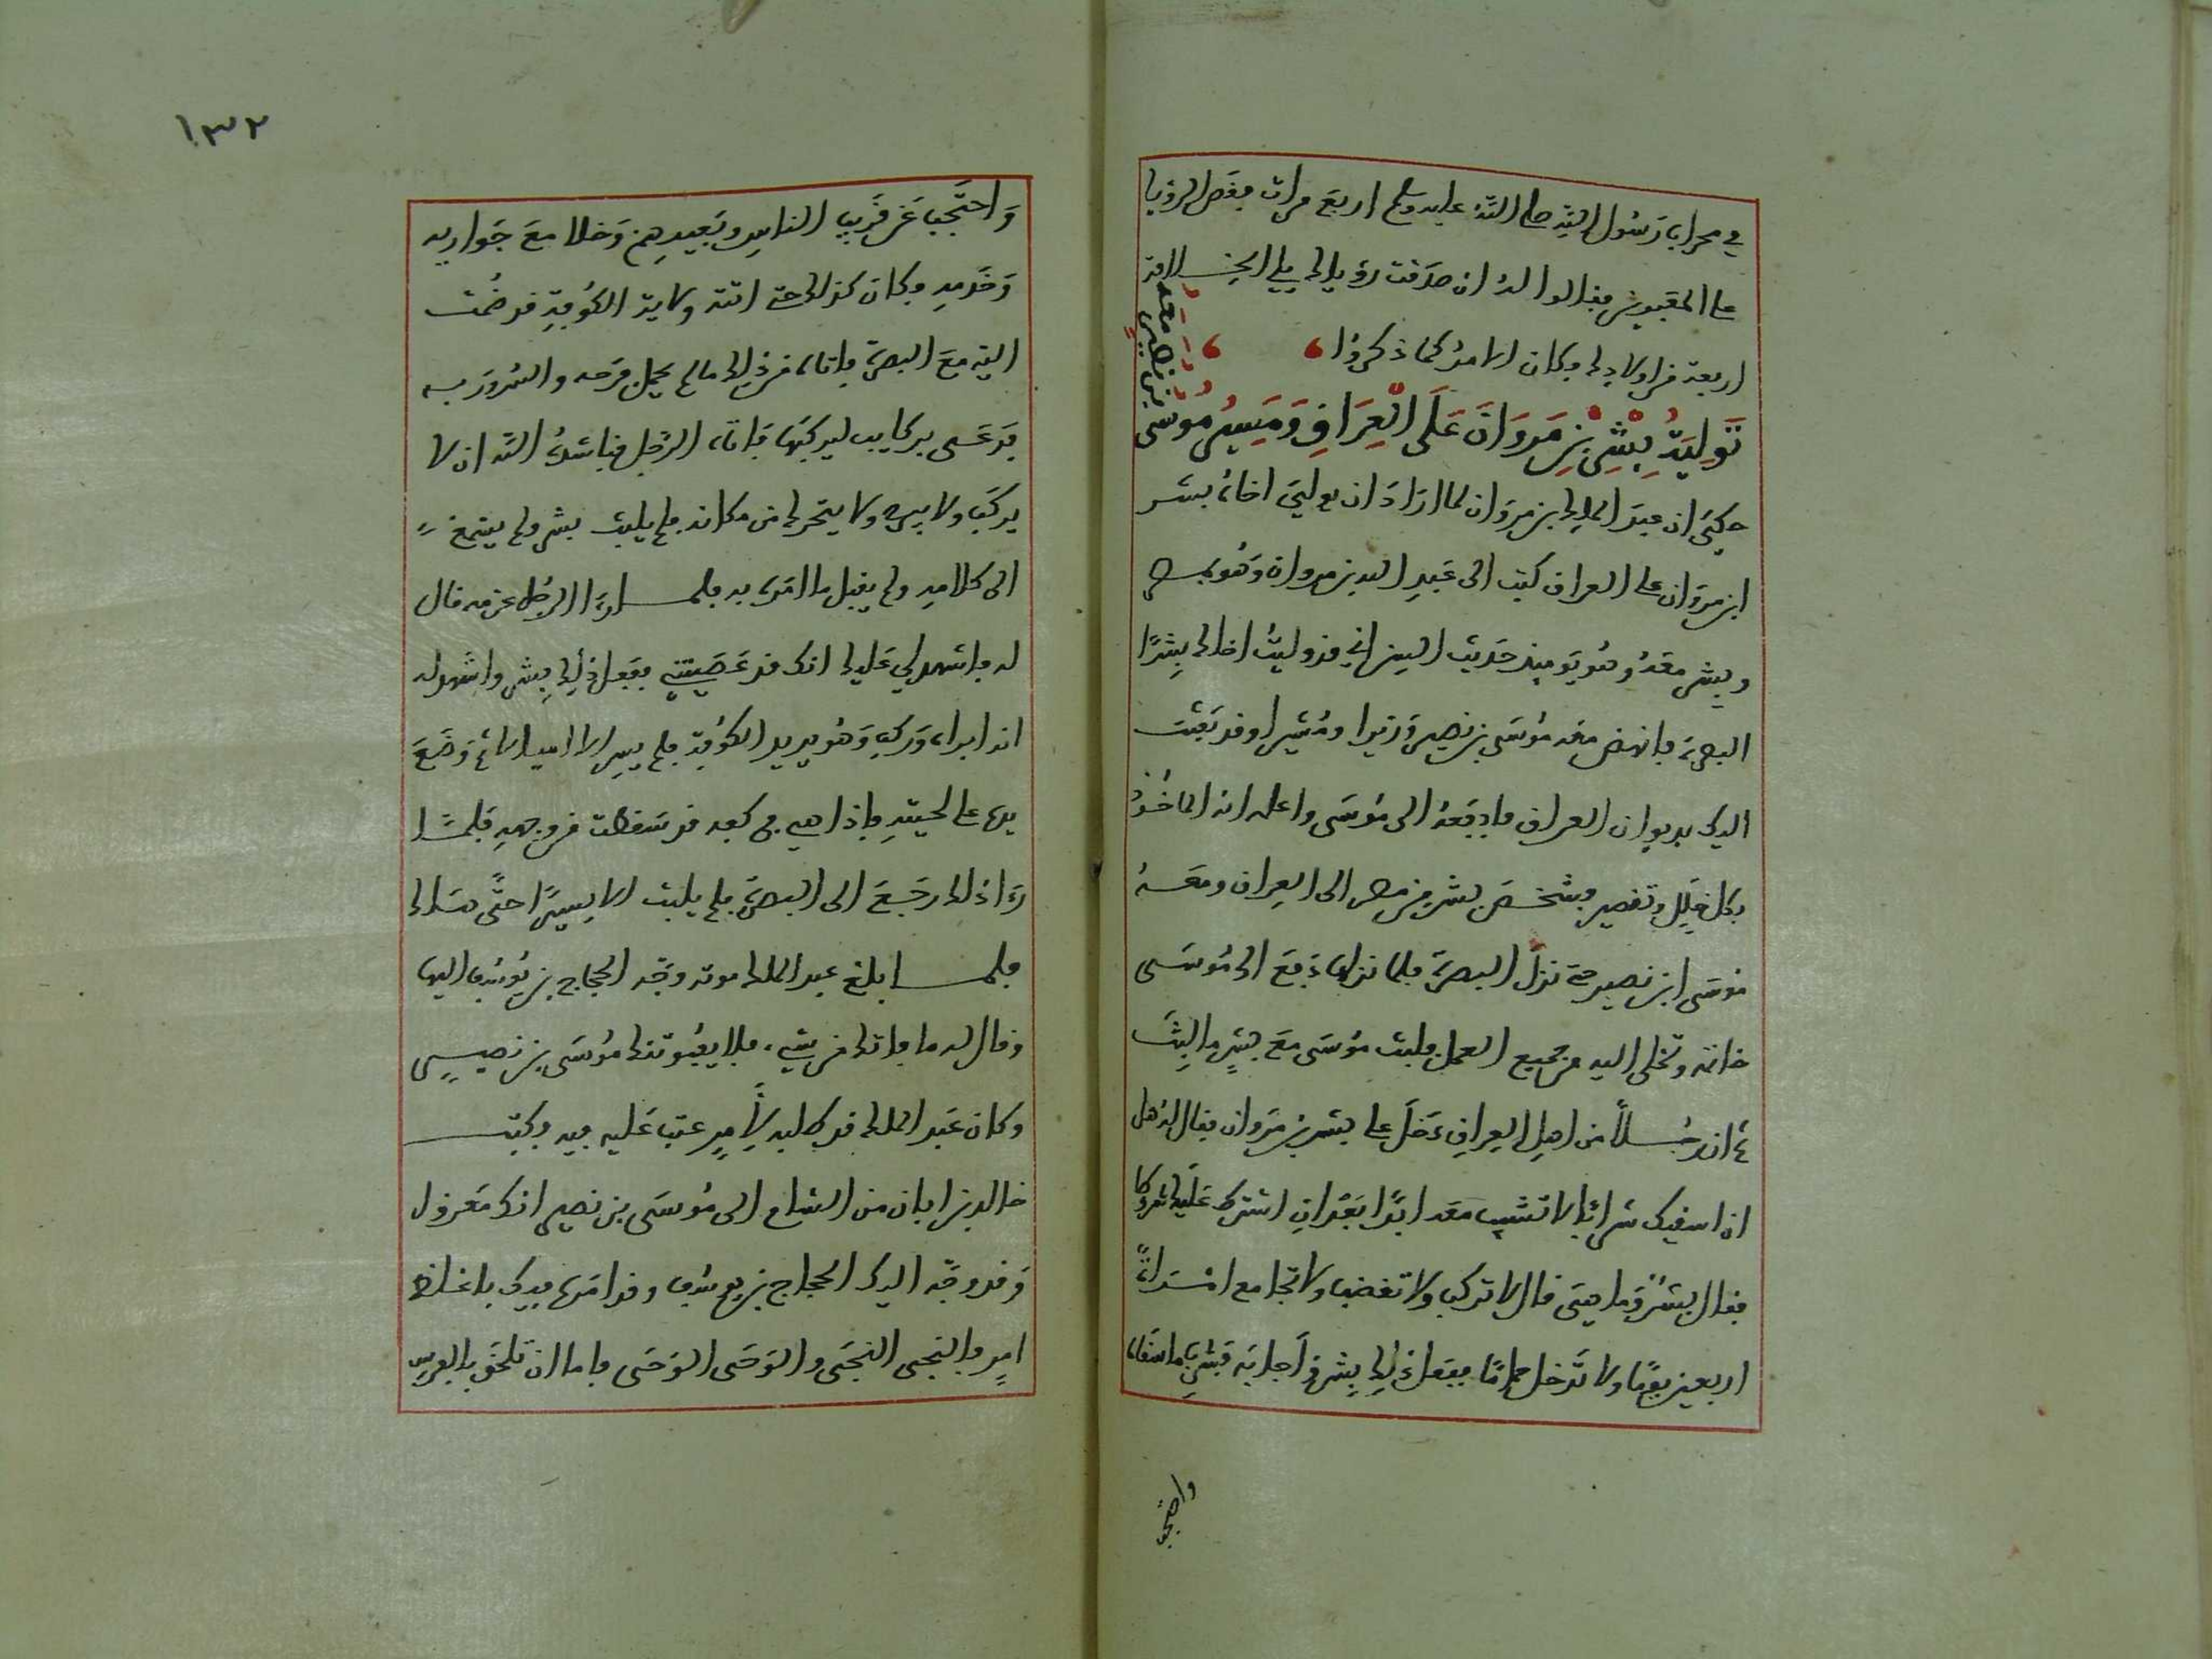 في محراب رسول الله صلى الله عليه وسلم اربع مرات فقص الرؤيا
على المعبرين فقالوا له ان صدقت رؤياك يلي الخلافة
اربعة من اولادك وكان الامر كما ذكروا
تولية بشر بن مروان على العراق ومسير موسى
بن نصير معه
حكي ان عبد الملك بن مروان لما اراد ان يولي اخاه بشر
ابن مروان على العراق كتب الى عبد العزيز بن مروان وهو بمصر
وبشر معه وهو يوميذ حديث السن اني قد وليت اخاك بشرا
البصرة فانهض معه موسى بن نصير وزيرا ومشيرا وقد بعثت
اليك بديوان العراق فادفعه الى موسى واعلمه انه الماخوذ
بكل خلل وتقصير فشخص بشر من مصر الى العراق ومعه
موسى ابن نصير حتى نزل البصرة فلما نزلها دفع الى موسى
خاتمه وتخلى اليه من جميع العمل فلبث موسى مع بشر ما لبث
ثم ان رجلا من اهل العراق دخل على بشر بن مروان فقال له هل
ان اسقيك شرابا لا تشيب معه ابدا بعد ان اشترط عليك شروطا
فقال بشر وما هي قال لا تركب ولا تغضب ولا تجامع امراة
اربعين يوما ولا تدخل حماما ففعل ذلك بشر واجابه فشرب ما سقاه
واحتجب
١٣٢
واحتجب عن قريب الناس وبعيدهم وخلا مع جواريه
وخدمه وكان كذلك حتى اتته ولاية الكوفة قد ضمت
اليه مع البصرة فاتاه من ذلك ما لم يحمل فرحه والسرور به
فدعى بركايب ليركبها فاتاه الرجل فناشده الله ان لا
يركب ولا يبرح ولا يتحرك من مكانه فلم يلبث بشر ولم يصغ
الى كلامه ولم يقبل ما امره به فلما راى الرجل عزمه قال
له فاشهد لي عليك انك قد عصيتني ففعل ذلك بشر واشهد له
انه ابراه وركب وهو يريد الكوفة فلم يسر الا اميالا ثم وضع
يده على لحيته فاذا هي في كفه قد سقطت من وجهه فلما
راى ذلك رجع الى البصرة فلم يلبث الا يسيرا حتى هلك
فلما بلغ عبد الملك موته وجه الحجاج بن يوسف اليها
وقال له ما فاتك من شيء فلا يفوتنك موسى بن نصير
وكان عبد الملك قد طلبه لامر عتب عليه فيه وكتب
خالد بن ابان من الشام الى موسى بن نصير انك معزول
وقد وجه اليك الحجاج بن يوسف وقد امره فيك باغلظ
امر فالنجى النجى والوحى الوحى فاما ان تلحق بالفرس